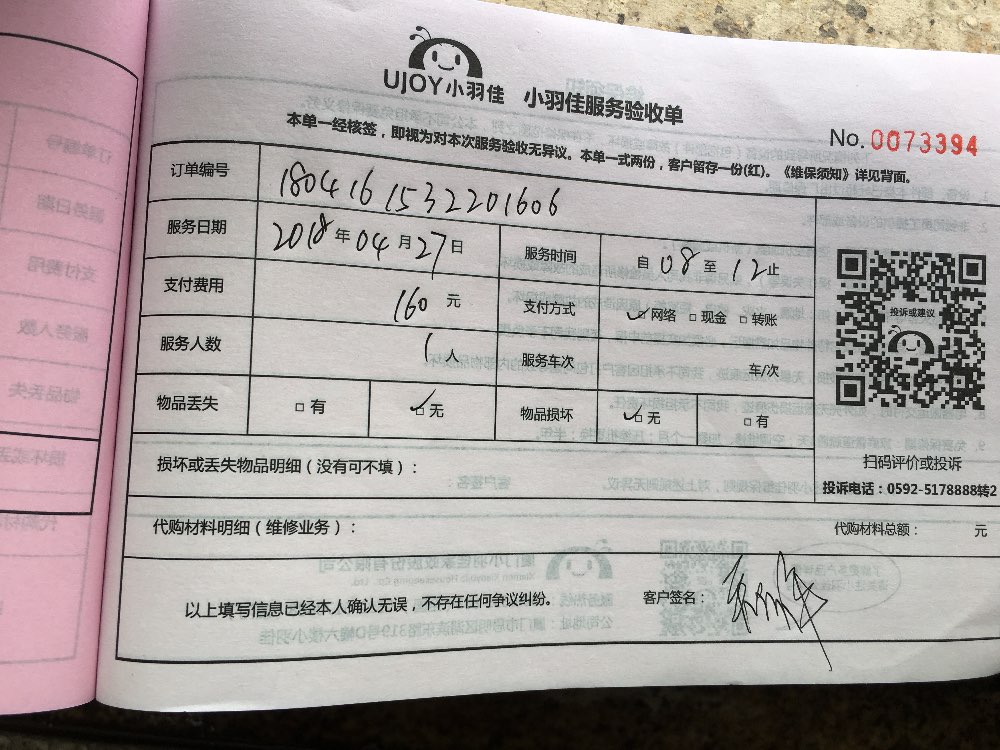 UJOY小羽佳 小羽佳服务验收单
No.0073394
本单一经核签，即视为对本次服务验收无异议。本单一式两份，客户留存一份(红)。《维保须知》详见背面。
订单编号 180416153220 1606
服务日期 2018年04月27日 服务时间 自08至12止
支付费用 160元 支付方式 ☑网络 □现金 □转账
服务人数 1人 服务车次 车/次
物品丢失 □有 ☑无 物品损坏 ☑无 □有
投诉或建议
扫码评价或投诉
投诉电话：0592-5178888转2
损坏或丢失物品明细（没有可不填）：
代购材料明细（维修业务）： 代购材料总额： 元
以上填写信息已经本人确认无误，不存在任何争议纠纷。 客户签名：